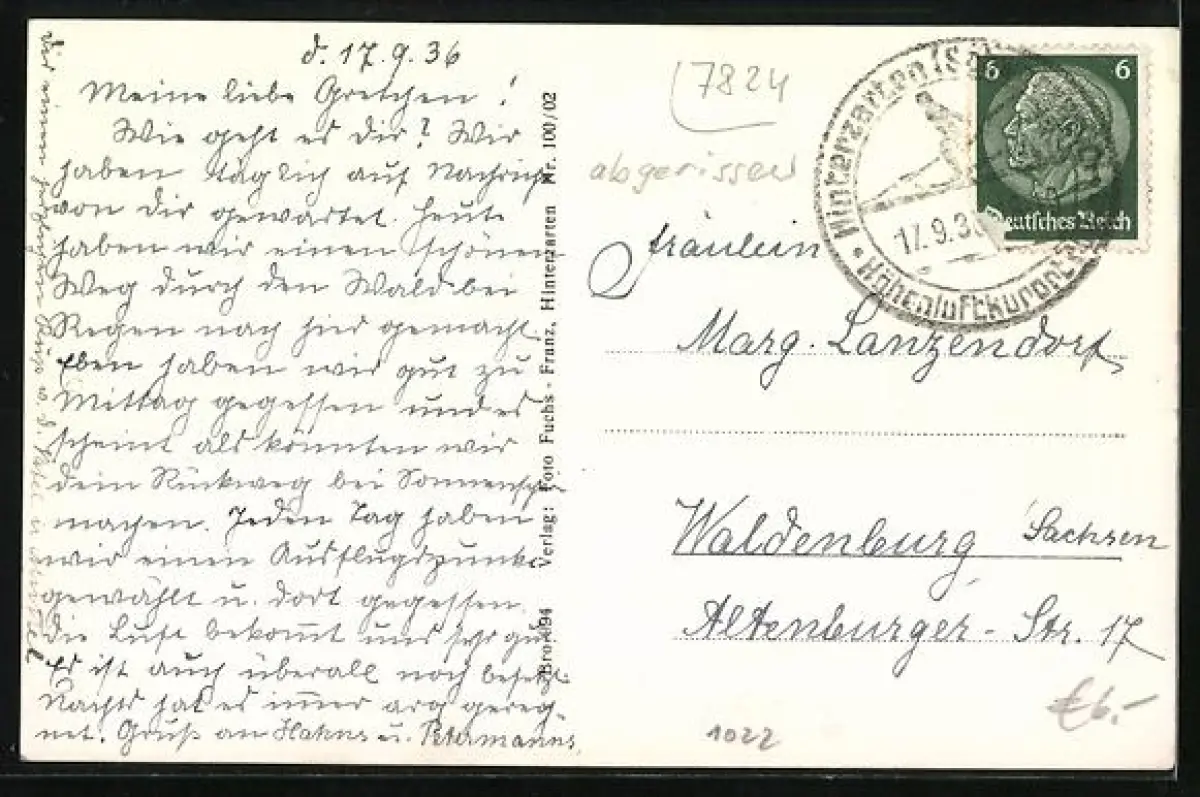 d. 17.9.36
Meine liebe Gretchen!
Wie geht es dir? Wir
haben täglich auf Nachricht
von dir gewartet. Heute
haben wir einen schönen
Weg durch den Wald bei
Regen nach hier gemacht.
Eben haben wir gut zu
Mittag gegessen und es
scheint als könnten wir
den Rückweg bei Sonnensch.
machen. Jeden Tag haben
wir einen Ausflugspunkt
gewählt u. dort gegessen.
Die Luft bekommt uns sehr gut
Es ist auch überall noch besetzt.
Nachts hat es immer arg gereg-
net. Gruß an Hahns u. Petermanns,
Dir einen herzlichen Kuss v. d.
Verlag: Foto Fuchs - Franz, Hinterzarten Nr. 100/02
7824
abgerissen
Hinterzarten
17.9.3
Höhenluftkurort
6 6
Deutsches Reich
Fräulein
Marg. Lanzendorf
Waldenburg Sachsen
Altenburger-Str. 17
€6.-
1022